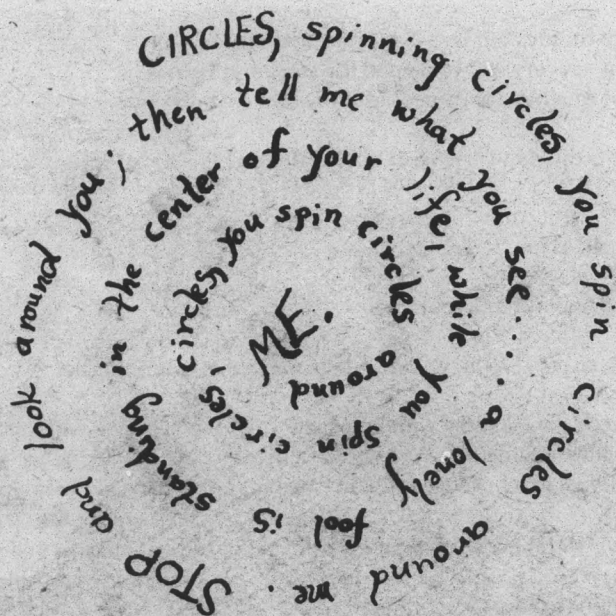 CIRCLES, spinning circles, you spin circles around me. STOP and look around you; then tell me what you see..... a lonely fool is standing in the center of your life, while you spin circles, circles, you spin circles around ME.